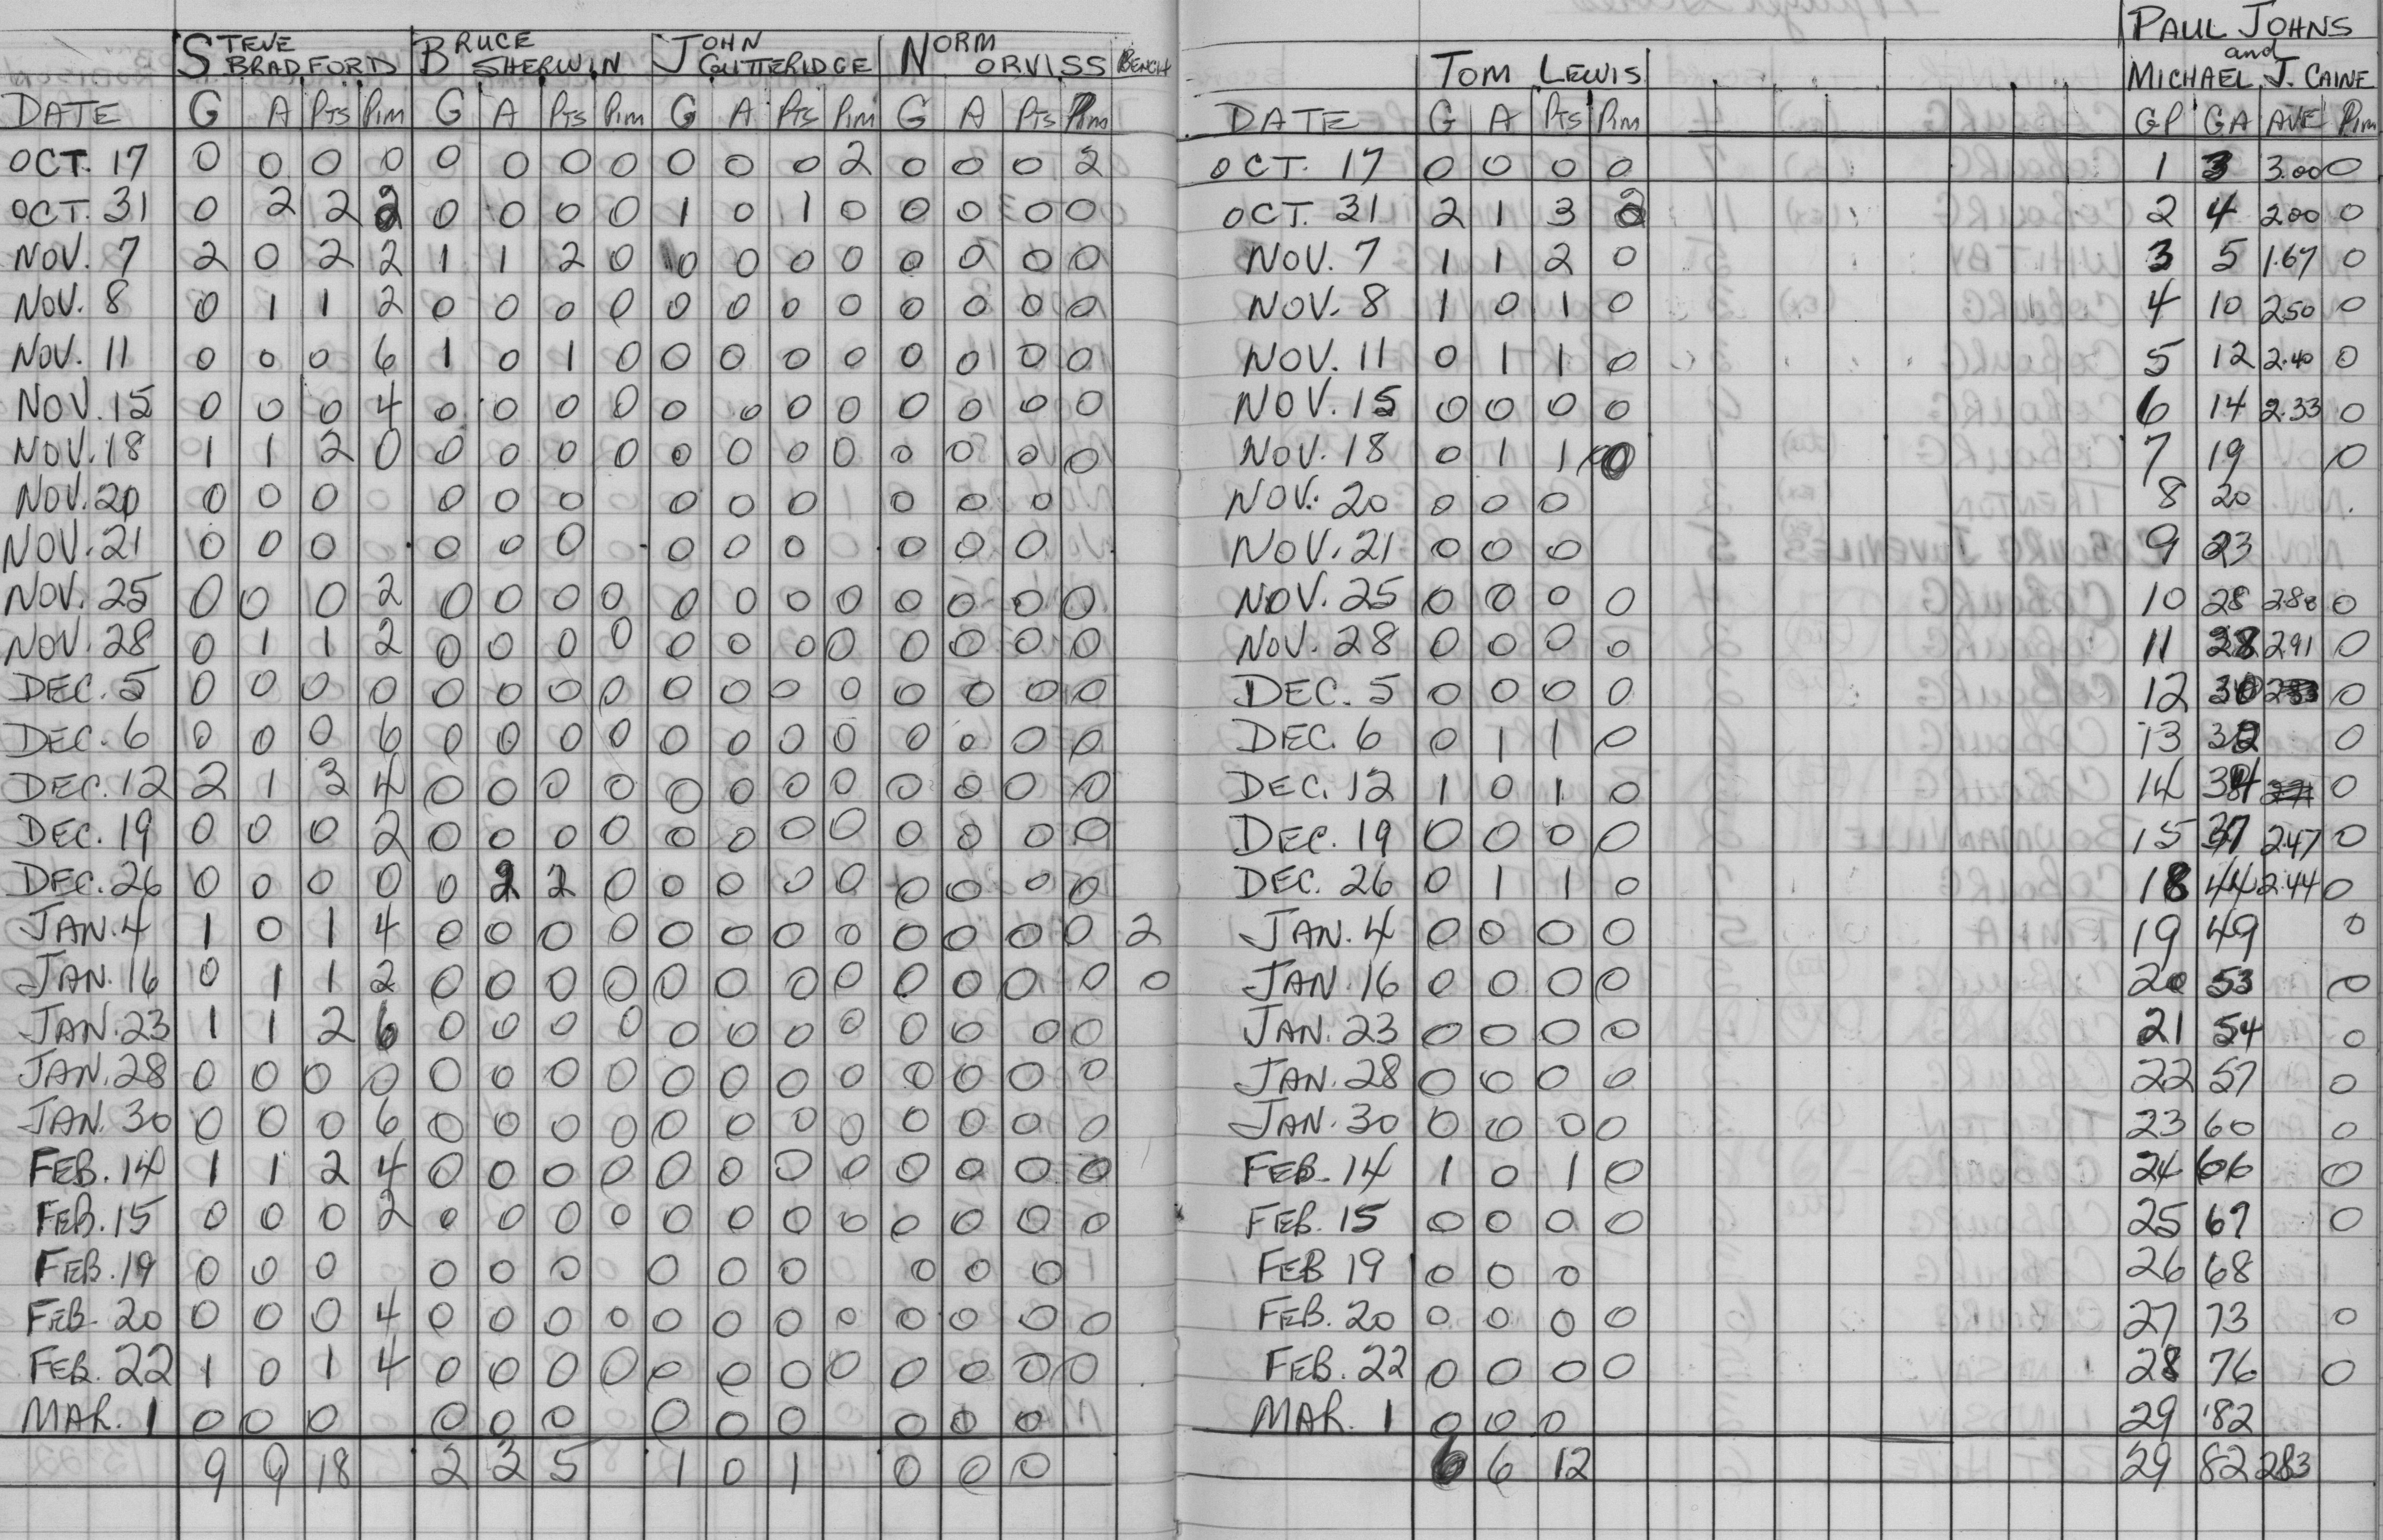 STEVE BRADFORD BRUCE SHERWIN JOHN GUTTERIDGE NORM ORVISS BENCH
DATE G A Pts Pim G A Pts Pim G A Pts Pim G A Pts Pim
OCT. 17 0 0 0 0 0 0 0 0 0 0 0 2 0 0 0 2
OCT. 31 0 2 2 2 0 0 0 0 1 0 1 0 0 0 0 0
NOV. 7 2 0 2 2 1 1 2 0 0 0 0 0 0 0 0 0
NOV. 8 0 1 1 2 0 0 0 0 0 0 0 0 0 0 0 0
NOV. 11 0 0 0 6 1 0 1 0 0 0 0 0 0 0 0 0
NOV. 15 0 0 0 4 0 0 0 0 0 0 0 0 0 0 0 0
NOV. 18 1 1 2 0 0 0 0 0 0 0 0 0 0 0 0 0
NOV. 20 0 0 0 0 0 0 0 0 0 0 0 0
NOV. 21 0 0 0 0 0 0 0 0 0 0 0 0
NOV. 25 0 0 0 2 0 0 0 0 0 0 0 0 0 0 0 0
NOV. 28 0 1 1 2 0 0 0 0 0 0 0 0 0 0 0 0
DEC. 5 0 0 0 0 0 0 0 0 0 0 0 0 0 0 0 0
DEC. 6 0 0 0 6 0 0 0 0 0 0 0 0 0 0 0 0
DEC. 12 2 1 3 4 0 0 0 0 0 0 0 0 0 0 0 0
DEC. 19 0 0 0 2 0 0 0 0 0 0 0 0 0 0 0 0
DEC. 26 0 0 0 0 0 2 2 0 0 0 0 0 0 0 0 0
JAN. 4 1 0 1 4 0 0 0 0 0 0 0 0 0 0 0 0 2
JAN. 16 0 1 1 2 0 0 0 0 0 0 0 0 0 0 0 0 0
JAN. 23 1 1 2 6 0 0 0 0 0 0 0 0 0 0 0 0
JAN. 28 0 0 0 0 0 0 0 0 0 0 0 0 0 0 0 0
JAN. 30 0 0 0 6 0 0 0 0 0 0 0 0 0 0 0 0
FEB. 14 1 1 2 4 0 0 0 0 0 0 0 0 0 0 0 0
FEB. 15 0 0 0 2 0 0 0 0 0 0 0 0 0 0 0 0
FEB. 19 0 0 0 0 0 0 0 0 0 0 0 0
FEB. 20 0 0 0 4 0 0 0 0 0 0 0 0 0 0 0 0
FEB. 22 1 0 1 4 0 0 0 0 0 0 0 0 0 0 0 0
MAR. 1 0 0 0 0 0 0 0 0 0 0 0 0
9 9 18 2 3 5 1 0 1 0 0 0
PAUL JOHNS
and
TOM LEWIS MICHAEL J. CAINE
DATE G A Pts Pim GP GA AVE Pim
OCT. 17 0 0 0 0 1 3 3.00 0
OCT. 31 2 1 3 2 2 4 2.00 0
NOV. 7 1 1 2 0 3 5 1.67 0
NOV. 8 1 0 1 0 4 10 2.50 0
NOV. 11 0 1 1 0 5 12 2.40 0
NOV. 15 0 0 0 0 6 14 2.33 0
NOV. 18 0 1 1 0 7 19 0
NOV. 20 0 0 0 8 20
NOV. 21 0 0 0 9 23
NOV. 25 0 0 0 0 10 28 2.80 0
NOV. 28 0 0 0 0 11 28 2.91 0
DEC. 5 0 0 0 0 12 30 0
DEC. 6 0 1 1 0 13 32 0
DEC. 12 1 0 1 0 14 34 0
DEC. 19 0 0 0 0 15 37 2.47 0
DEC. 26 0 1 1 0 18 44 2.44 0
JAN. 4 0 0 0 0 19 49 0
JAN. 16 0 0 0 0 20 53 0
JAN. 23 0 0 0 0 21 54 0
JAN. 28 0 0 0 0 22 57 0
JAN. 30 0 0 0 0 23 60 0
FEB. 14 1 0 1 0 24 66 0
FEB. 15 0 0 0 0 25 67 0
FEB 19 0 0 0 26 68
FEB. 20 0 0 0 0 27 73 0
FEB. 22 0 0 0 0 28 76 0
MAR. 1 0 0 0 29 82
6 6 12 29 82 283